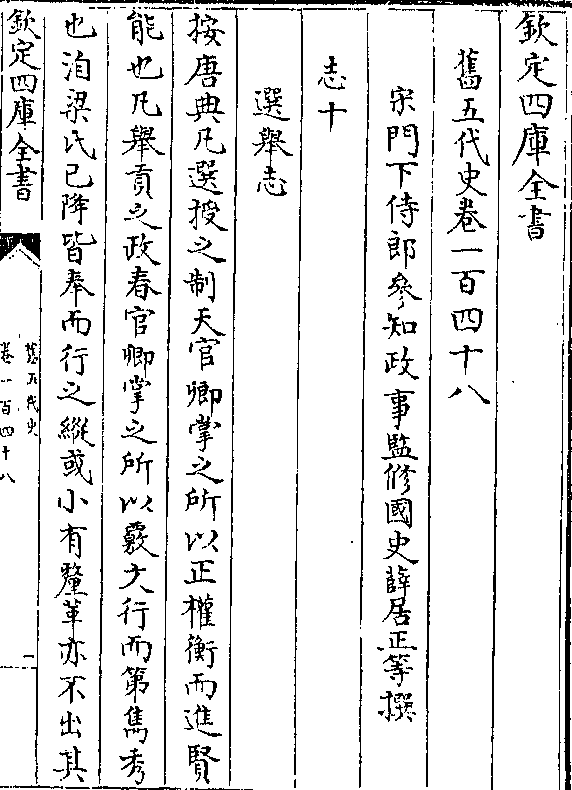 欽定四庫全書
舊五代史卷一百四十八
宋門下侍郎參知政事監修國史薛居正等撰
志十
選舉志
按唐典凡選授之制天官卿掌之所以正權衡而進賢
能也凡舉貢之政春官卿掌之所以覈大行而第雋秀
也洎梁氏已降皆奉而行之縱或小有釐革亦不出其
欽定四庫全書
舊五代史
卷一百四十八
一